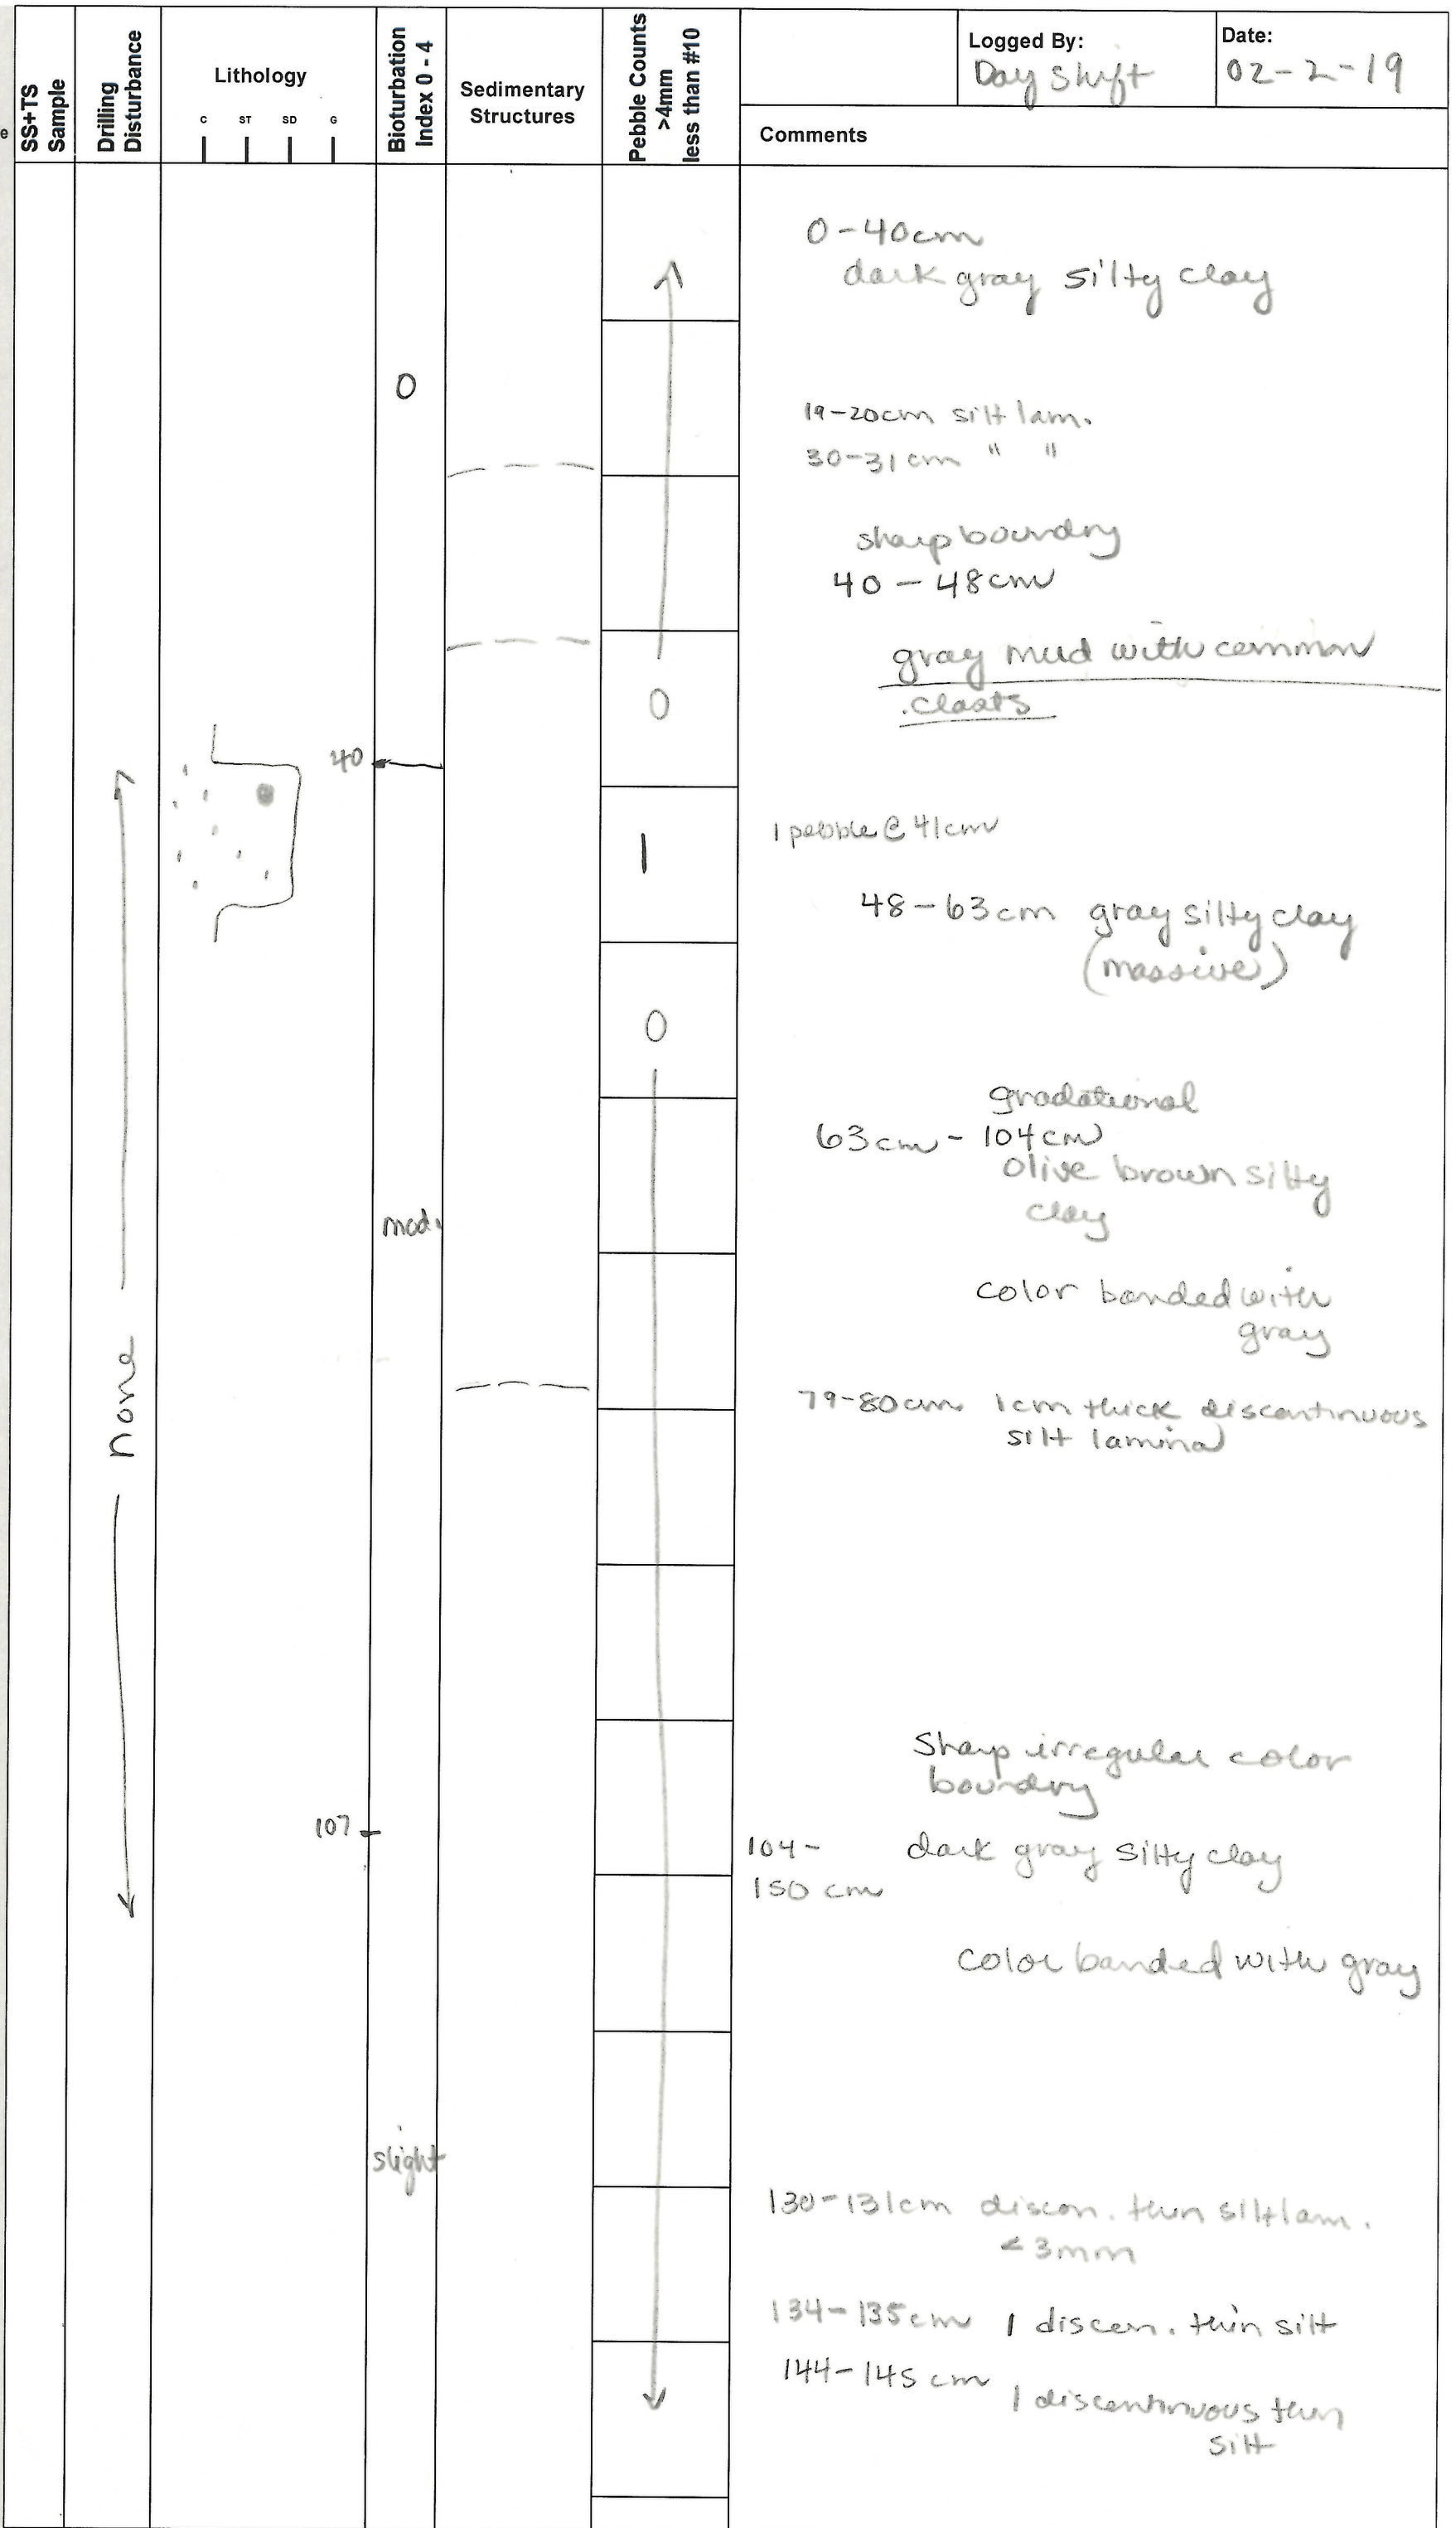 e
SS+TS
Sample
Drilling
Disturbance
Lithology
C ST SD G
Bioturbation
Index 0 - 4
Sedimentary
Structures
Pebble Counts
>4mm
less than #10
Logged By:
Day Shift
Date:
02-2-19
Comments
0-40cm
dark gray silty clay
0
19-20cm silt lam.
30-31cm " "
sharp boundry
40-48cm
gray mud with common
clasts
0
40
1
1 pebble @ 41cm
48-63cm gray silty clay
(massive)
0
gradational
63cm - 104cm
olive brown silty
clay
mod.
color banded with
gray
none
79-80cm 1cm thick discontinuous
silt lamina
Sharp irregular color
boundry
107
104-
150 cm
dark gray silty clay
color banded with gray
slight
130-131cm discon. thin silt lam.
<3mm
134-135cm 1 discon. thin silt
144-145cm 1 discontinuous thin
silt